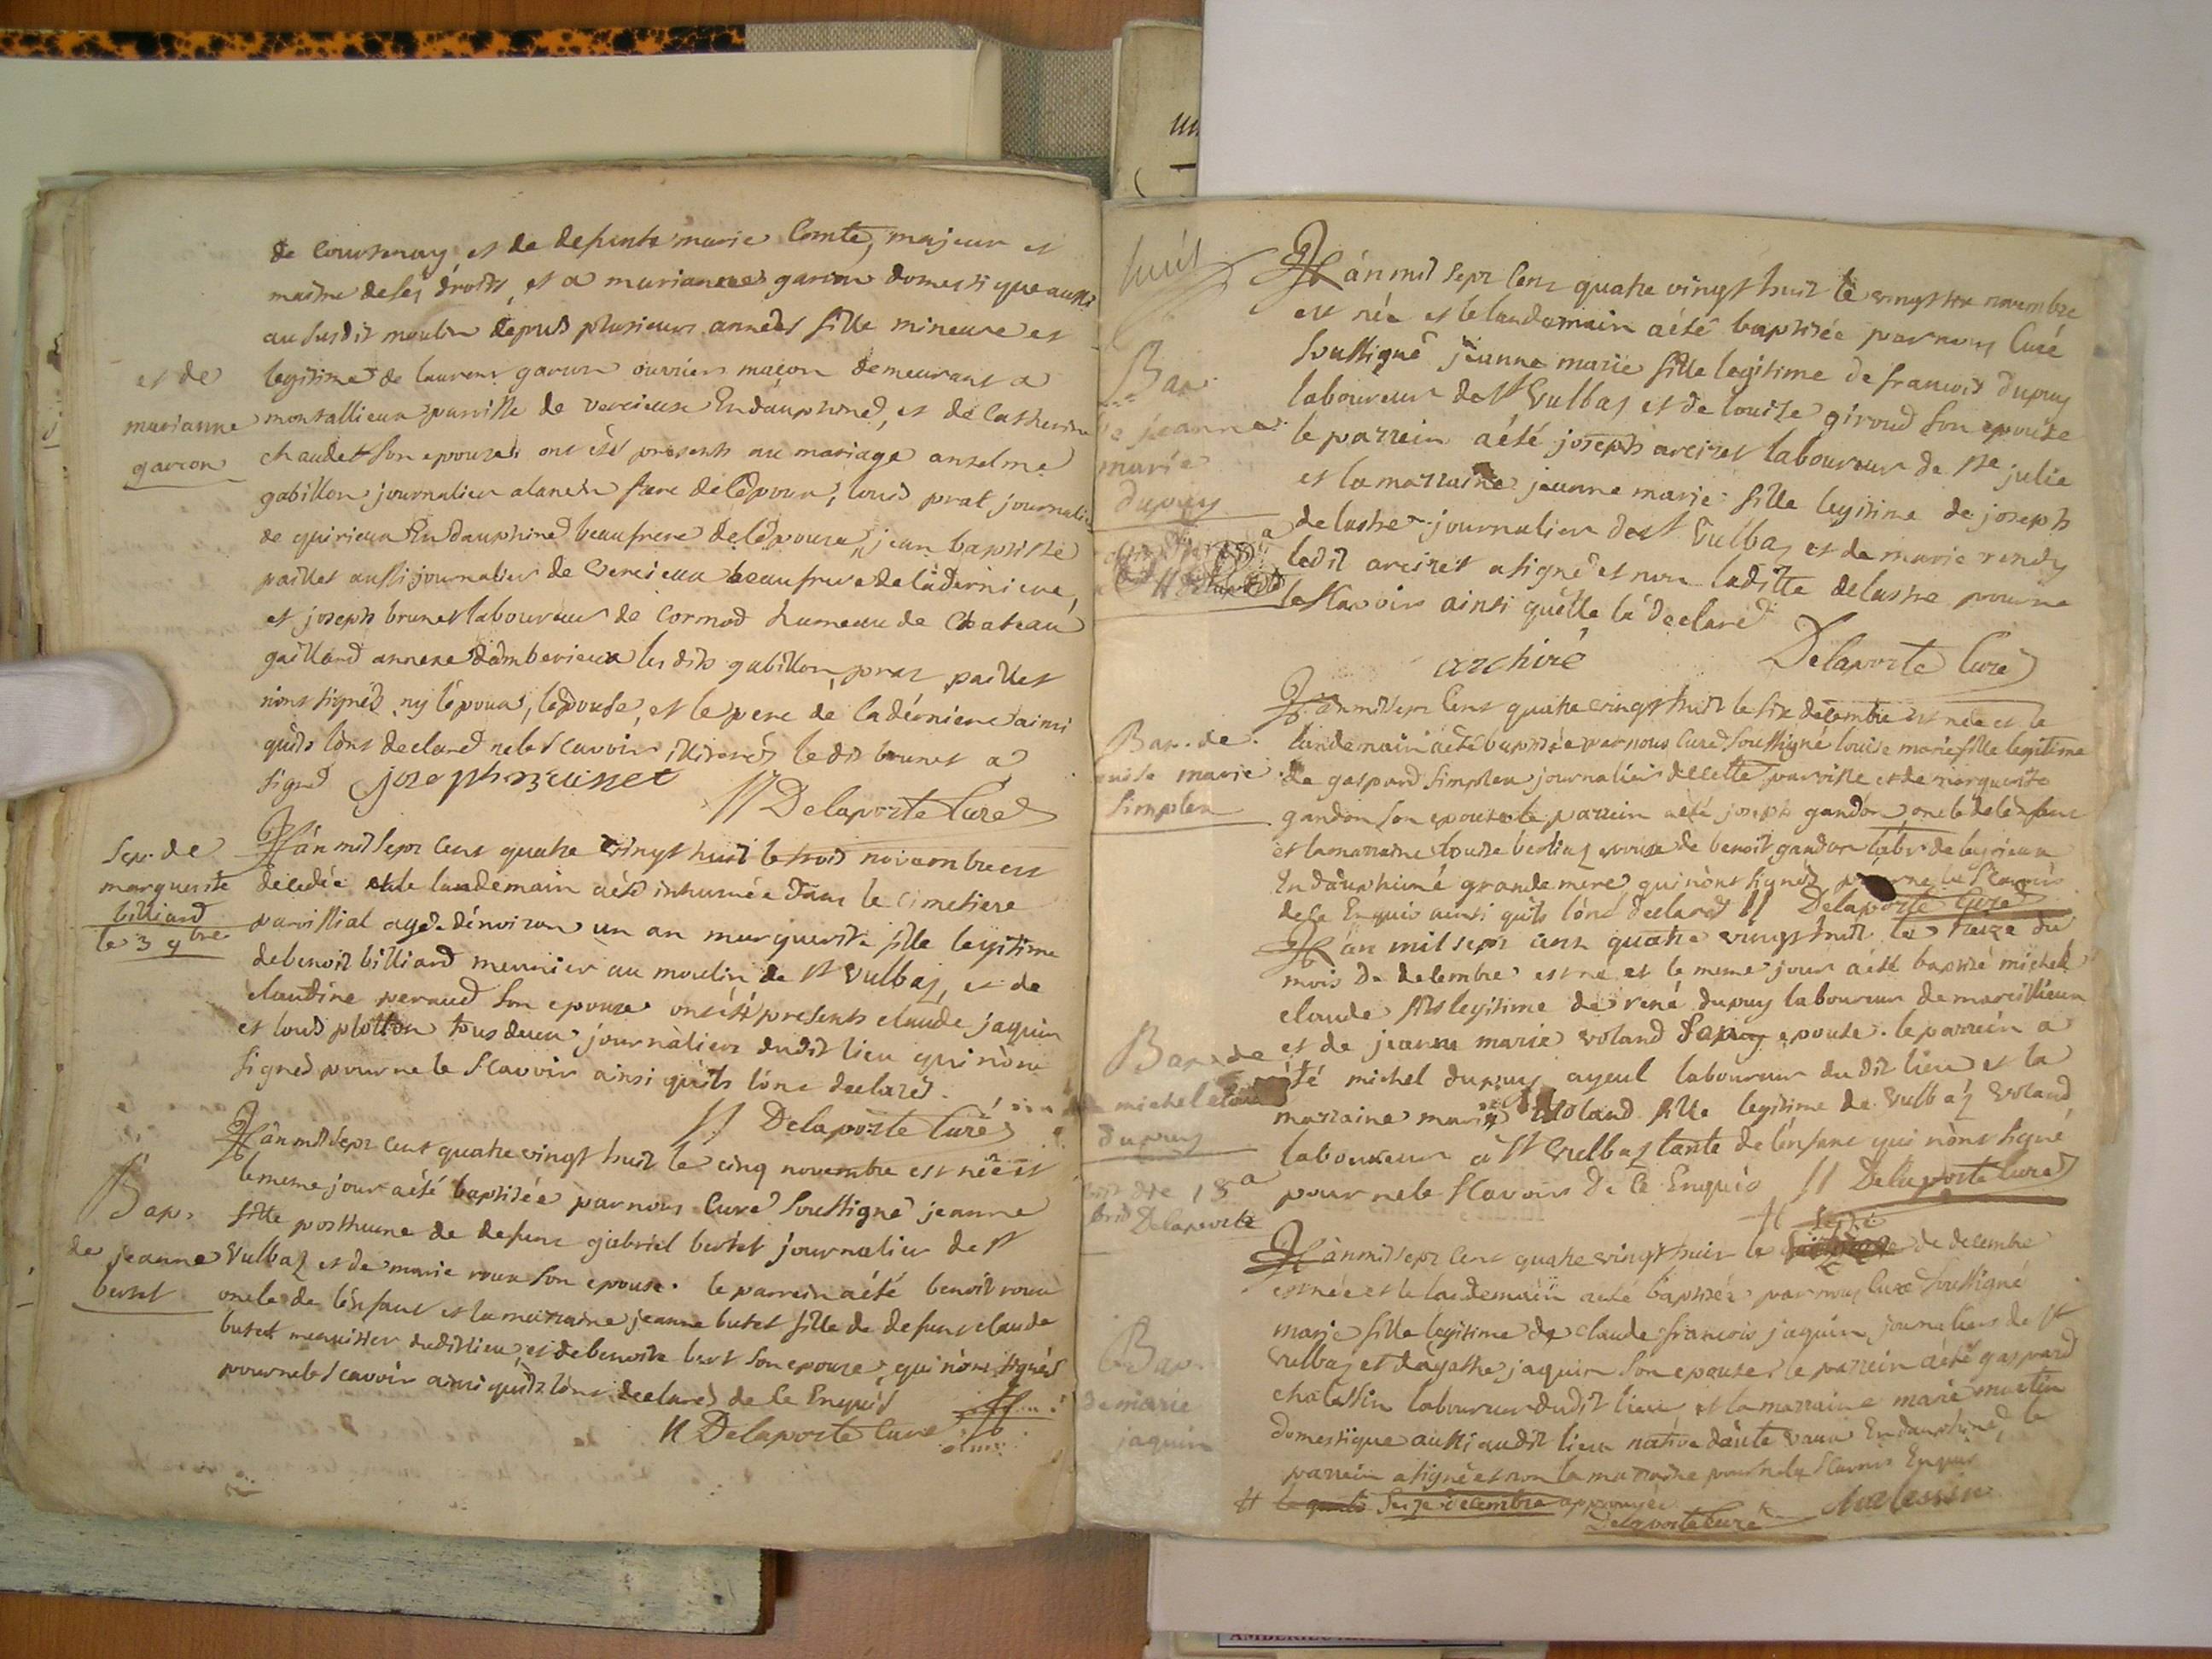 de Courtenay et de defunte marie Comte, majeur et
maitre de ses droits, et a marianne garçon domestique aussi
au susdit moulin depuis plusieurs années fille mineure et
et de
marianne
garçon
legitime de laurens garçon ouvrier maçon demeurant a
montallieux parroisse de vercieux En dauphiné, et de Catherine
chaudet son epouse. ont été presents au mariage anselme
gabillon journalier a frere de lépoux, louis prat journalier
de quirieux En dauphiné beaufrere de lépouse, jean baptiste
paillet aussi journalier de vercieux beaufrere de la derniere,
et joseph brunet laboureur de Cormoz hameau de Chateau
gaillard annexe dámberieux les dits gabillon, prat, paillet
nónt signés ny lépoux, lépouse, et le pere de la derniere ainsi
quils lónt declaré ne le scavoir illiterés le dit brunet a
signé joseph brunet
// Delaporte Curé
Sep. de
marguerite
billiard
le 3 9bre
L'án mil sept Cent quatre vingt huit le trois novembre est
decedée et le landemain a été inhumée dans le cimetiere
parroissial agée dénviron un an marguerite fille legitime
de benoit billiard meunier au moulin de St Vulbaz, et de
claudine peraud son epouse ont été presents claude jaquin
et louis plotton tous deux journaliers dudit lieu qui nónt
signés pour ne le scavoir ainsi quils lónt declaré.
// Delaporte Curé
Bap.
de jeanne
butet
L'án mil sept Cent quatre vingt huit le cinq novembre est née et
le meme jour a été baptisée par nous Curé soussigné jeanne
fille posthume de defunt gabriel butet journalier de St
Vulbaz et de marie roux son epouse. le parrein a été benoit roux
oncle de lénfant et la marraine jeanne butet fille de defunt claude
butet menuisier dudit lieu, et de benoite son epouse, qui nónt signés
pour ne le scavoir ainsi quils lónt declaré de Ce Enquis
// Delaporte Curé
huit
Bap.
de jeanne
marie
dupuy
L'án mil sept Cent quatre vingt huit le vingt six novembre
est née et le landemain a été baptisée par nous Curé
soussigné jeanne marie fille legitime de francois dupuy
laboureur de St Vulbaz et de louise giroud son epouse
le parrein a été joseph arcizet laboureur de Ste julie
et la marraine jeanne marie fille legitime de joseph
delastre journalier de St Vulbaz et de marie rendy
ledit arcizet a signé et non laditte delastre pour ne
le scavoir ainsi quélle lá declaré
Delaporte Curé
Bap. de
louise marie
Simplex
L'án mil sept Cent quatre vingt huit le six decembre est née et le
landemain a été baptisée par nous Curé soussigné louise marie fille legitime
de gaspard simplex journalier de cette parroisse et de marguerite
gandon son epouse le parrein a été joseph gandon oncle de lénfant
et la marraine louise berliaz epouse de benoit gandon labr de
En dauphiné grande mere qui nónt signés pour ne le scavoir
de Ce Enquis ainsi quils lónt declaré // Delaporte Curé
Bap. de
michel claude
dupuy
L'án mil sept cent quatre vingt huit le treize du
mois de decembre est né et le meme jour a été baptisé michel
claude fils legitime de rené dupuy laboureur de marcillieux
et de jeanne marie voland son epouse. le parrein a
été michel dupuy ayeul laboureur du dit lieu et la
marraine marie voland fille legitime de Vulbaz voland
laboureur a St Vulbaz tante de lénfant qui nónt signé
pour ne le scavoir de Ce Enquis // Delaporte Curé
Delaporte
Bap.
de marie
jaquin
L'án mil sept Cent quatre vingt huit le seize de decembre
est née et le landemain a été baptisée par nous Curé soussigné
marie fille legitime de claude francois jaquin journalier de St
Vulbaz et dágathe jaquin son epouse. le parrein a été gaspard
chalessin laboureur dudit lieu et la marraine marie martin
domestique aussi audit lieu native En dauphiné, le
parrein a signé et non la marraine pour ne le scavoir Enquis
# seize decembre approuvée
Delaporte Curé
chalessin